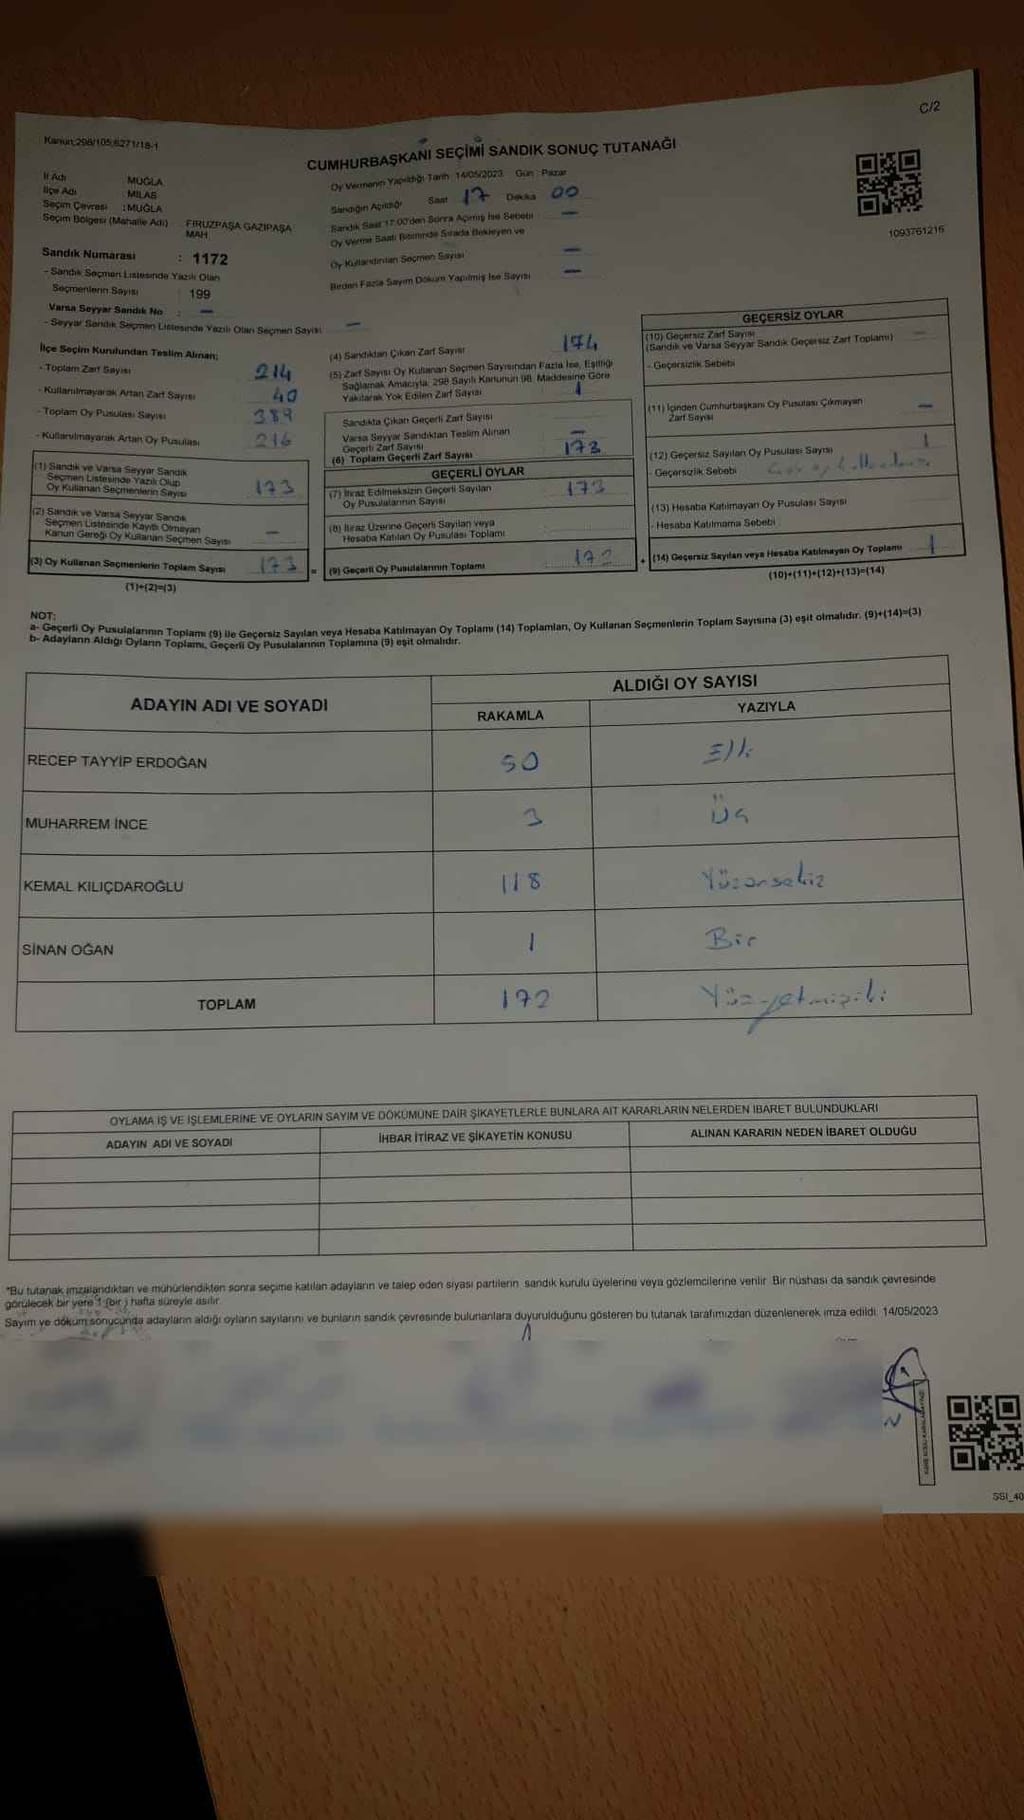 C/2
Kanun:298/105;6271/18-1
CUMHURBAŞKANI SEÇİMİ SANDIK SONUÇ TUTANAĞI
İl Adı MUĞLA
İlçe Adı MİLAS
Seçim Çevresi : MUĞLA
Seçim Bölgesi (Mahalle Adı) FİRUZPAŞA GAZİPAŞA MAH.
Sandık Numarası : 1172
- Sandık Seçmen Listesinde Yazılı Olan
Seçmenlerin Sayısı 199
Varsa Seyyar Sandık No : —
- Seyyar Sandık Seçmen Listesinde Yazılı Olan Seçmen Sayısı —
Oy Vermenin Yapıldığı Tarih 14/05/2023 Gün : Pazar
Sandığın Açıldığı Saat 17 Dakika 00
Sandık Saat 17:00'den Sonra Açılmış İse Sebebi —
Oy Verme Saati Bitiminde Sırada Bekleyen ve
Oy Kullandırılan Seçmen Sayısı —
Birden Fazla Sayım Döküm Yapılmış İse Sayısı —
1093761216
İlçe Seçim Kurulundan Teslim Alınan;
- Toplam Zarf Sayısı 214
- Kullanılmayarak Artan Zarf Sayısı 40
- Toplam Oy Pusulası Sayısı 389
- Kullanılmayarak Artan Oy Pusulası 216
(1) Sandık ve Varsa Seyyar Sandık
Seçmen Listesinde Yazılı Olup
Oy Kullanan Seçmenlerin Sayısı 173
(2) Sandık ve Varsa Seyyar Sandık
Seçmen Listesinde Kayıtlı Olmayan
Kanun Gereği Oy Kullanan Seçmen Sayısı —
(3) Oy Kullanan Seçmenlerin Toplam Sayısı 173
(1)+(2)=(3)
(4) Sandıktan Çıkan Zarf Sayısı 174
(5) Zarf Sayısı Oy Kullanan Seçmen Sayısından Fazla İse, Eşitliği
Sağlamak Amacıyla, 298 Sayılı Kanunun 98. Maddesine Göre
Yakılarak Yok Edilen Zarf Sayısı 1
Sandıkta Çıkan Geçerli Zarf Sayısı
Varsa Seyyar Sandıktan Teslim Alınan
Geçerli Zarf Sayısı —
(6) Toplam Geçerli Zarf Sayısı 173
GEÇERLİ OYLAR
(7) İtiraz Edilmeksizin Geçerli Sayılan
Oy Pusulalarının Sayısı 173
(8) İtiraz Üzerine Geçerli Sayılan veya
Hesaba Katılan Oy Pusulası Toplamı
= (9) Geçerli Oy Pusulalarının Toplamı 172
GEÇERSİZ OYLAR
(10) Geçersiz Zarf Sayısı —
(Sandık ve Varsa Seyyar Sandık Geçersiz Zarf Toplamı)
- Geçersizlik Sebebi
(11) İçinden Cumhurbaşkanı Oy Pusulası Çıkmayan
Zarf Sayısı —
(12) Geçersiz Sayılan Oy Pusulası Sayısı 1
- Geçersizlik Sebebi
(13) Hesaba Katılmayan Oy Pusulası Sayısı
- Hesaba Katılmama Sebebi
+ (14) Geçersiz Sayılan veya Hesaba Katılmayan Oy Toplamı 1
(10)+(11)+(12)+(13)=(14)
NOT:
a- Geçerli Oy Pusulalarının Toplamı (9) ile Geçersiz Sayılan veya Hesaba Katılmayan Oy Toplamı (14) Toplamları, Oy Kullanan Seçmenlerin Toplam Sayısına (3) eşit olmalıdır. (9)+(14)=(3)
b- Adayların Aldığı Oyların Toplamı, Geçerli Oy Pusulalarının Toplamına (9) eşit olmalıdır.
ADAYIN ADI VE SOYADI ALDIĞI OY SAYISI
RAKAMLA YAZIYLA
RECEP TAYYİP ERDOĞAN 50 Elli
MUHARREM İNCE 3 Üç
KEMAL KILIÇDAROĞLU 118 Yüzonsekiz
SİNAN OĞAN 1 Bir
TOPLAM 172 Yüzyetmişiki
OYLAMA İŞ VE İŞLEMLERİNE VE OYLARIN SAYIM VE DÖKÜMÜNE DAİR ŞİKAYETLERLE BUNLARA AİT KARARLARIN NELERDEN İBARET BULUNDUKLARI
ADAYIN ADI VE SOYADI İHBAR İTİRAZ VE ŞİKAYETİN KONUSU ALINAN KARARIN NEDEN İBARET OLDUĞU
*Bu tutanak imzalandıktan ve mühürlendikten sonra seçime katılan adayların ve talep eden siyasi partilerin sandık kurulu üyelerine veya gözlemcilerine verilir. Bir nüshası da sandık çevresinde
görülecek bir yere 1 (bir) hafta süreyle asılır.
Sayım ve döküm sonucunda adayların aldığı oyların sayılarını ve bunların sandık çevresinde bulunanlara duyurulduğunu gösteren bu tutanak tarafımızdan düzenlenerek imza edildi. 14/05/2023
SSI_40